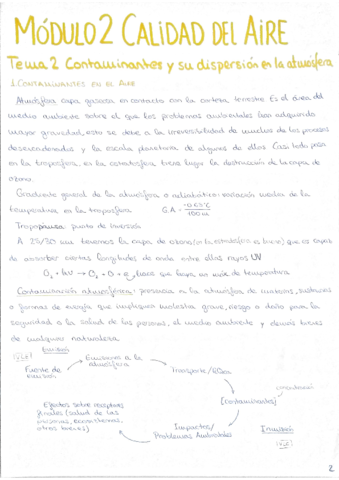 MÓDULO 2 CALIDAD DEL AIRE
Tema 2 Contaminantes y su dispersión en la atmósfera
1. CONTAMINANTES EN EL AIRE
Atmósfera capa gaseosa en contacto con la corteza terrestre Es el área del
medio ambiente sobre el que los problemas ambientales han adquirido
mayor gravedad, esto se debe a la irreversibilidad de muchos de los procesos
desencadenados y la escala planetaria de algunos de ellos Casi todo pasa
en la troposfera, en la estratosfera tiene lugar la destrucción de la capa de
ozono.
Gradiente general de la atmósfera o adiabático: variación media de la
temperatura en la troposfera G.A = -0.65°C / 100 m
Tropopausa: punto de inversión
A 25/30 km tenemos la capa de ozono (en la estratosfera es bueno) que es capaz
de absorber ciertas longitudes de onda entre ellas rayos UV
O₃ + hν → O₂ + O + e, hace que haya un máx de temperatura
Contaminación atmosférica: presencia en la atmósfera de materias, sustancias
o formas de energía que impliquen molestia grave, riesgo o daño para la
seguridad o la salud de las personas, el medio ambiente y demás bienes
de cualquier naturaleza
Emisión
(VLE)
Fuente de
emisión
Emisiones a la
atmósfera
Transporte/RQca
[contaminantes]
Impactos/
Problemas Ambientales
Inmisión
Efectos sobre receptores
finales (salud de las
personas, ecosistemas,
otros bienes)
2